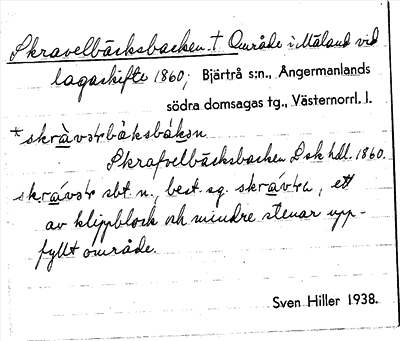 Skravelbäcksbacken. † Område i Mäland vid
lagaskifte 1860; Bjärtrå s:n., Ångermanlands
södra domsagas tg., Västernorrl. l.
*skràvəlbäksbàkən
Skrafvelbäcksbacken Dsk hdl. 1860.
skràvəl sbt. n., best. sg. skrávla, ett
av klippblock och mindre stenar upp-
fyllt område.
Sven Hiller 1938.